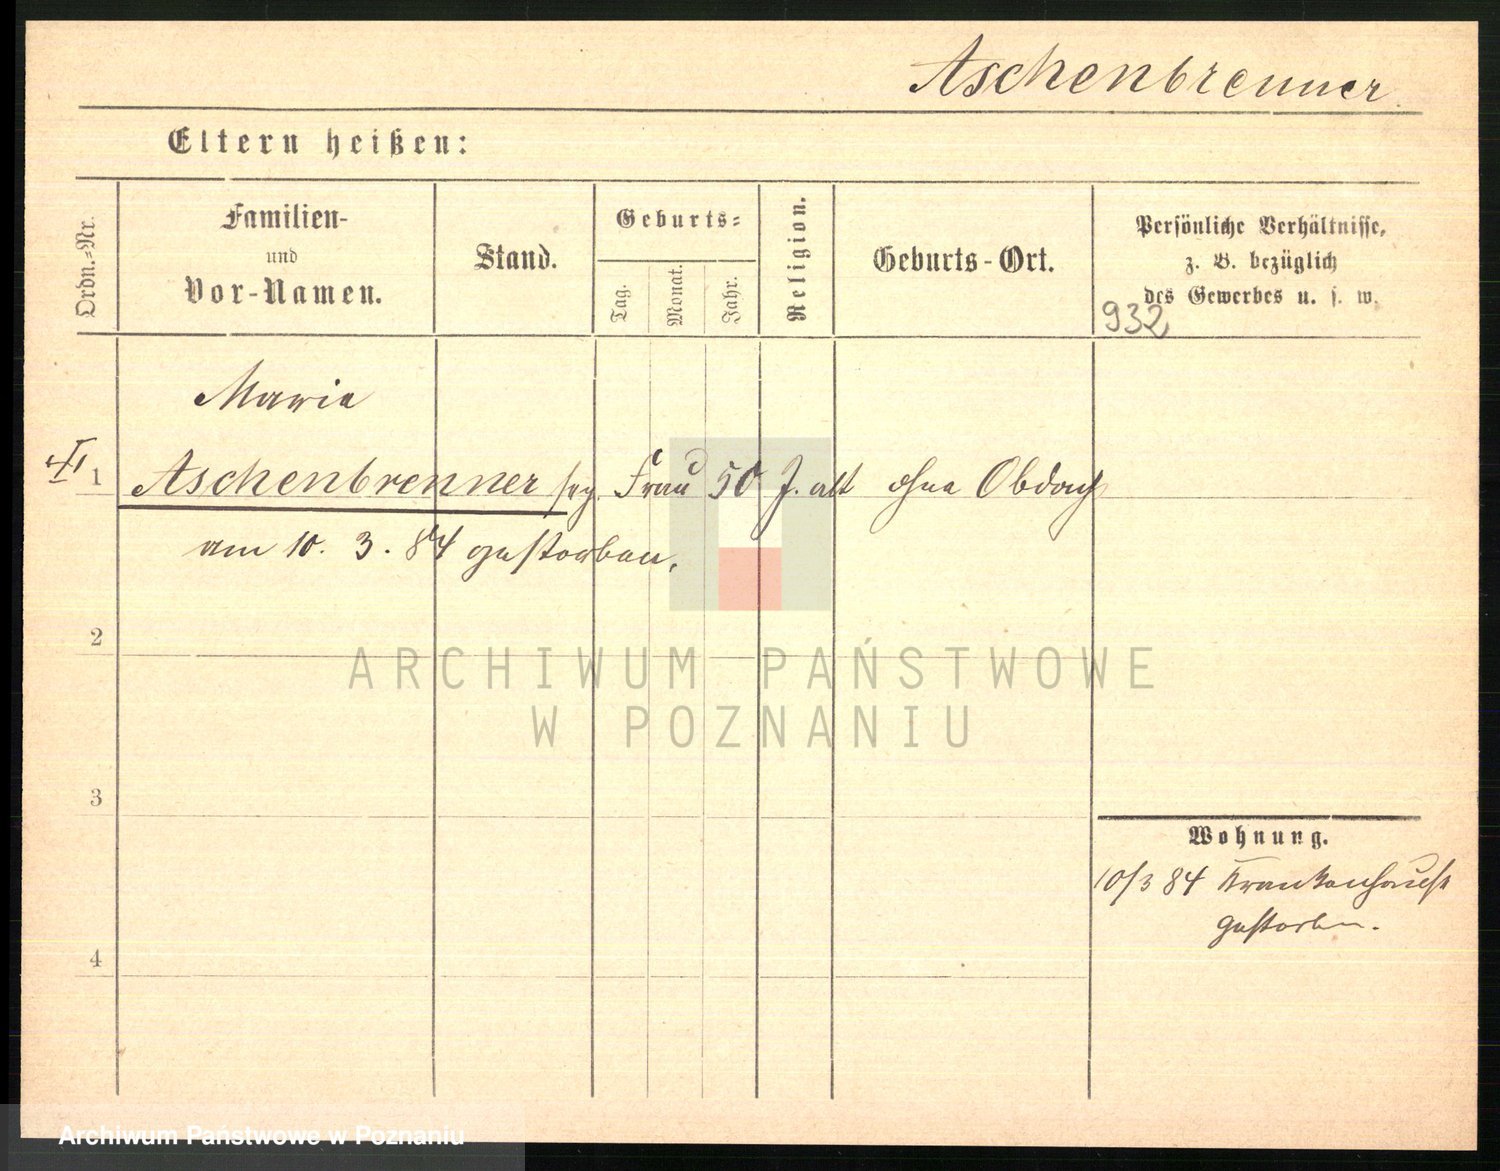 Aschenbrenner.
Eltern heißen:
Ordn.-Nr.
Familien-
und
Vor-Namen.
Stand.
Geburts-
Tag.
Monat.
Jahr.
Religion.
Geburts-Ort.
Persönliche Verhältnisse,
z. B. bezüglich
des Gewerbes u. s. w.
932
Maria
1 Aschenbrenner Frau 50 J. alt ohne Obdach
am 10. 3. 84 gestorben.
2
3
4
Wohnung.
10/3 84 Krankenhause
gestorben.
ARCHIWUM PAŃSTWOWE
W POZNANIU
Archiwum Państwowe w Poznaniu